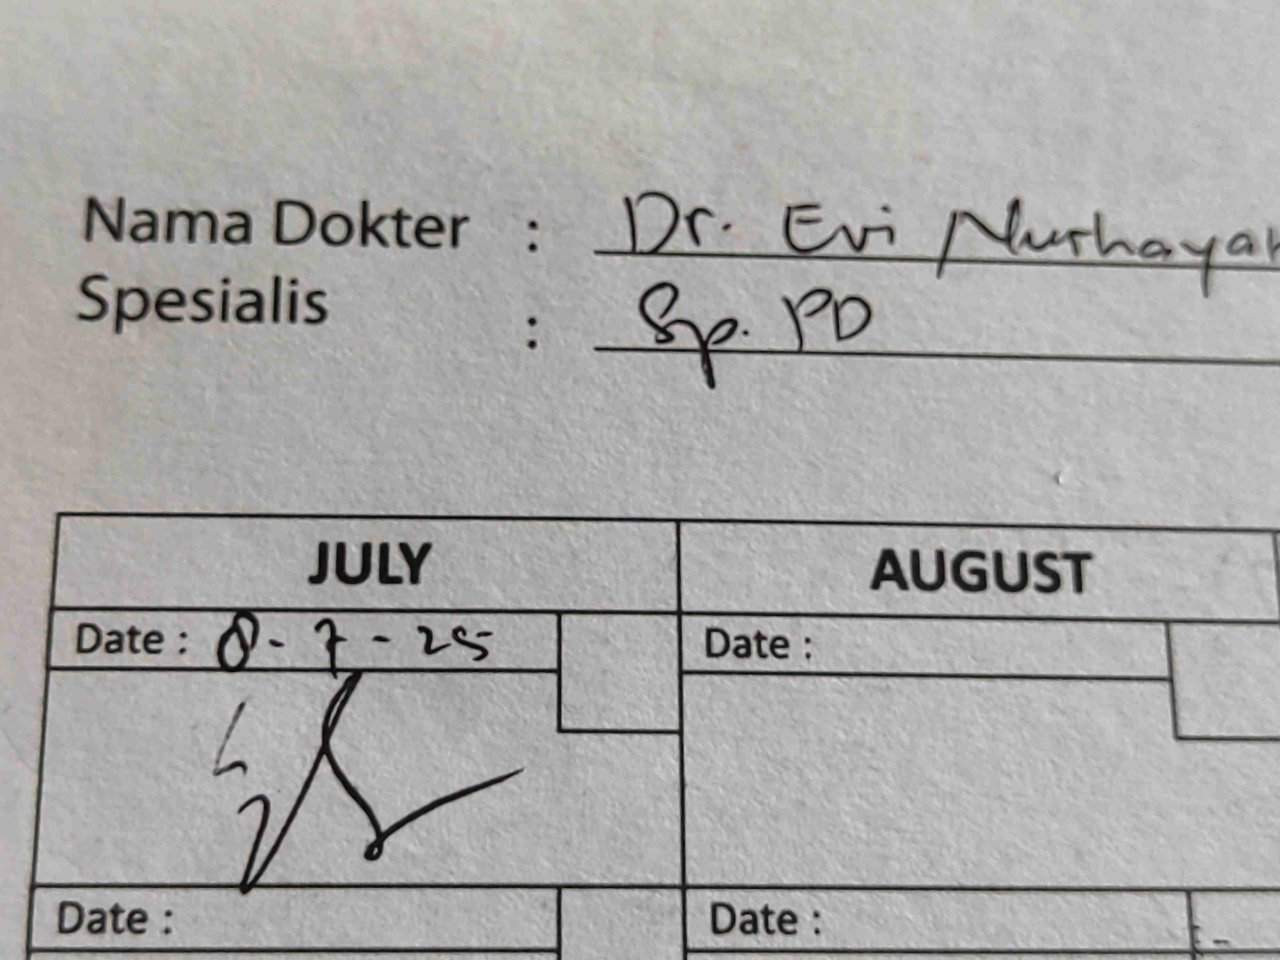 Nama Dokter : Dr. Evi Nurhayat
Spesialis : Sp. PD
JULY AUGUST
Date : 8-7-25 Date :
Date : Date :